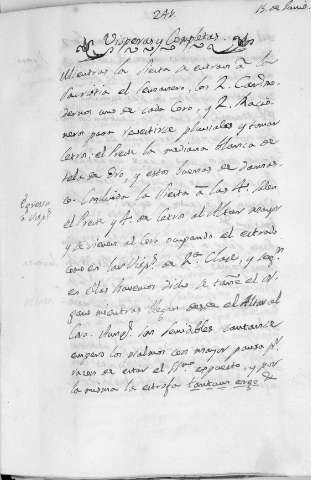 241.
15. de Junio
Visperas, y Completas.
Mientras la Siesta se entran á la
Sacristia el Semanero, los 2. Cande-
ros uno de cada Coro, y 2. Racio-
neros para revestirse pluviales y tomar
Cetros: el Preste la mediana blanca de
tela de Oro, y estos buenos de damas-
co. Concluida la Siesta salen
el Preste y de Cetro al Altar mayor
y se vienen al Coro ocupando el estrado
como en las Visp.s de 2.a Clase, y seg.n
en ellas havemos dicho se tañe el
gano mientras llegan desde el Altar al
Coro. Aunq.e son semidobles cantanse
empero los psalmos con mayor pausa p.r
razon de estar el S.mo expuesto, y por
la misma la estrofa Tantum ergo &
Egreso
a Visp.s